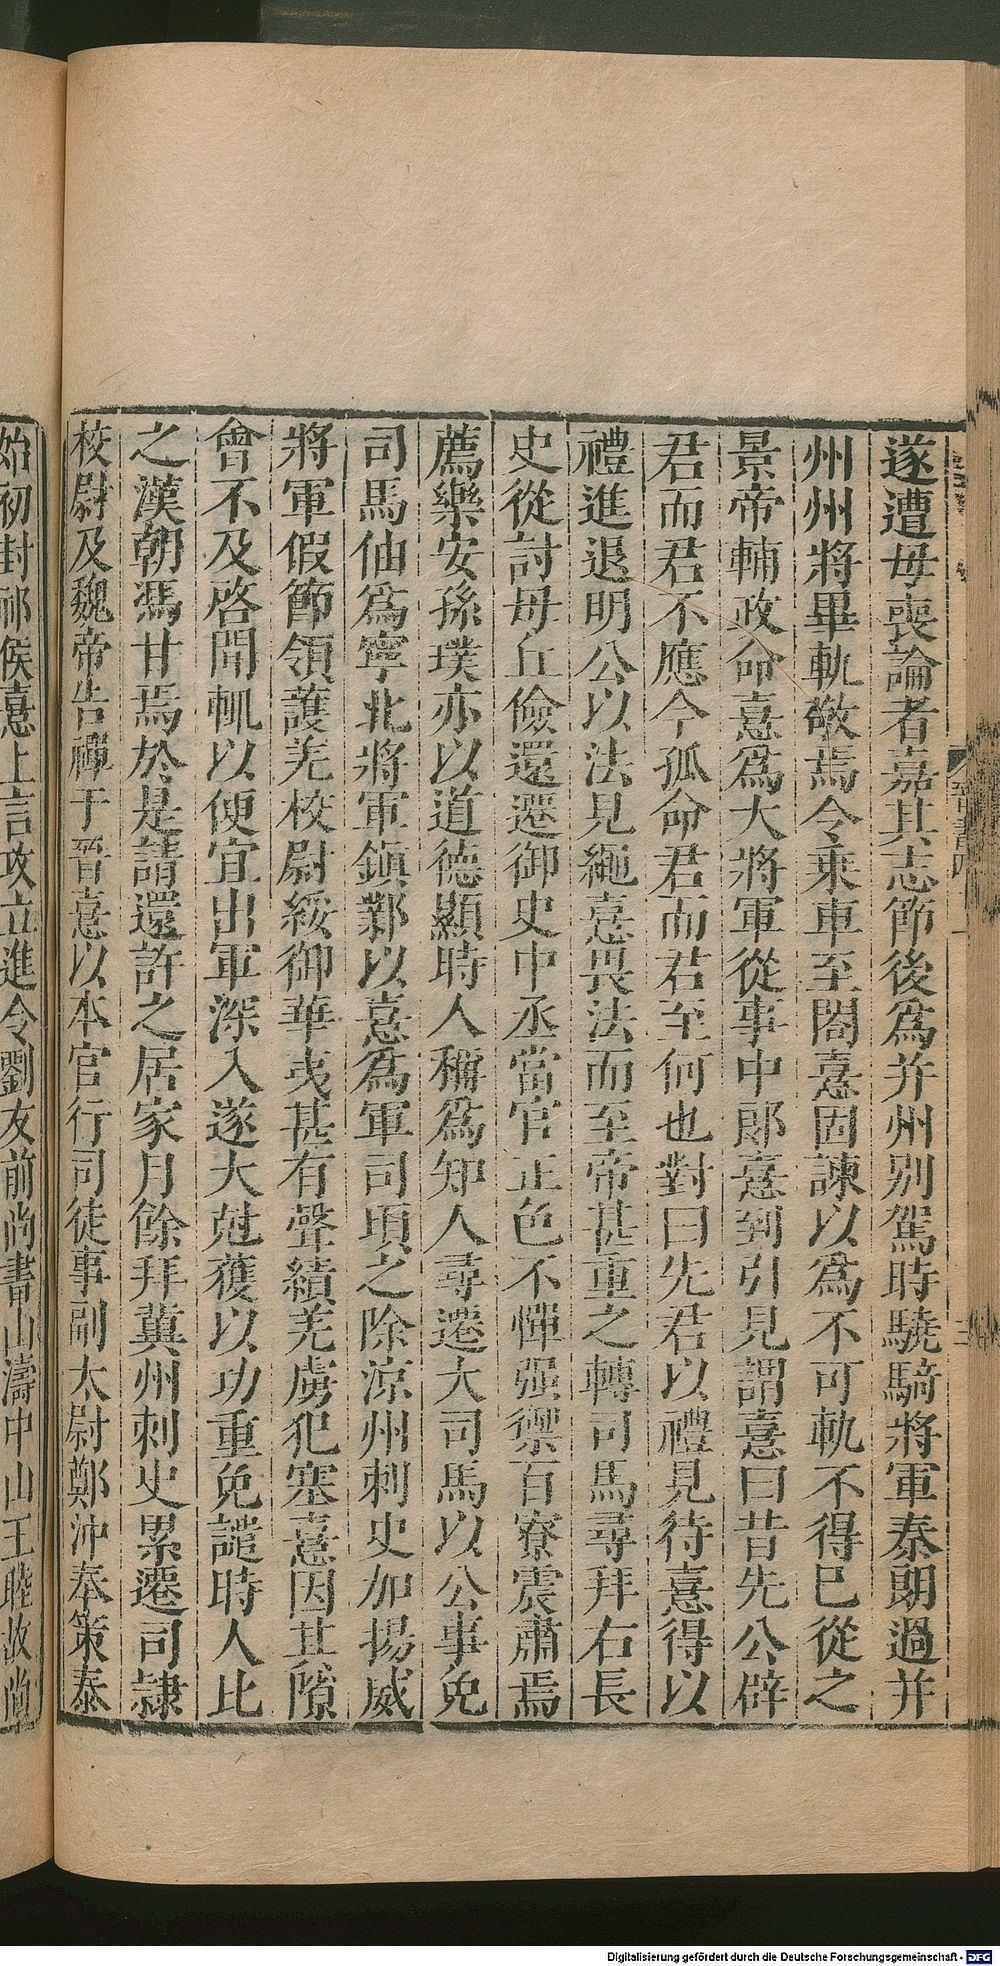 遂遭母喪論者嘉其志節後爲并州别駕時驍騎將軍秦朗過并
州州將畢軌敬焉令乘車至閤憙因諫以爲不可軌不得已從之
景帝輔政命憙爲大將軍從事中郎憙到引見謂憙曰昔先公辟
君而君不應今孤命君而君至何也對曰先君以禮見待憙得以
禮進退明公以法見繩憙畏法而至帝甚重之轉司馬尋拜右長
史從討毋丘儉還遷御史中丞當官正色不憚强禦百寮震肅焉
薦樂安孫璞亦以道德顯時人稱爲知人尋遷大司馬以公事免
司馬伷爲寧北將軍鎮鄴以憙爲軍司頃之除涼州刺史加揚威
將軍假節領護羌校尉綏御華夷甚有聲績羌虜犯塞憙因其隙
會不及啓聞輒以便宜出軍深入遂大尅獲以功重免譴時人比
之漢朝馮甘焉於是請還許之居家月餘拜冀州刺史累遷司隸
校尉及魏帝告禪于晉憙以本官行司徒事副太尉鄭沖奉策泰
始初封祁侯憙上言故立進令劉友前尚書山濤中山王睦故尚
Digitalisierung gefördert durch die Deutsche Forschungsgemeinschaft - DFG